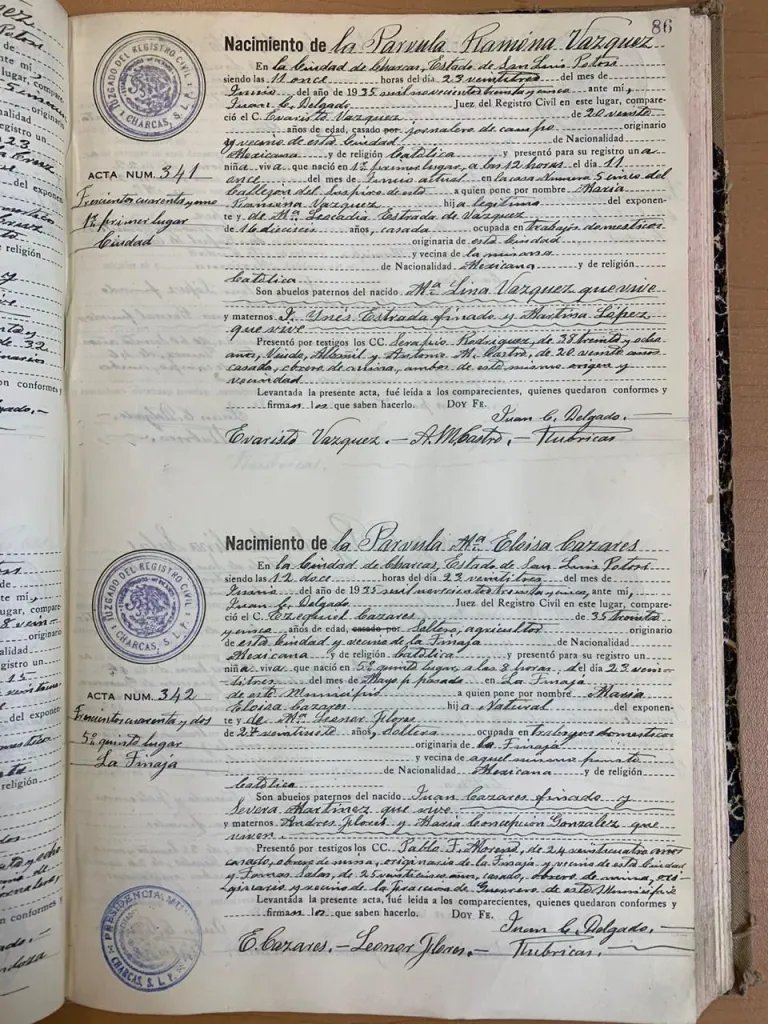 86
Nacimiento de la Parvula Ramona Vazquez
En la Ciudad de Charcas, Estado de San Luis Potosi
siendo las 11 once horas del día 23 veintitres del mes de
Junio del año de 1935 mil novecientos treinta y cinco ante mí,
Juan C. Delgado Juez del Registro Civil en este lugar, compare-
ció el C. Evaristo Vazquez de 20 veinte
años de edad, casado por jornalero de campo originario
y vecino de esta Ciudad de Nacionalidad
Mexicana y de religión Católica y presentó para su registro una
niña viva que nació en 1º primer lugar, a las 12 horas el día 11
once del mes de Junio actual en la casa Numero 5 cinco del
Callejon del Suspiro de esta a quien pone por nombre Maria
Ramona Vazquez hija legitima del exponen-
te y de Mª Leocadia Estrada de Vazquez
de 16 dieciseis años, casada ocupada en trabajos domesticos
originaria de esta Ciudad
y vecina de la misma
de Nacionalidad Mexicana y de religión
Católica
Son abuelos paternos del nacido Mª Lina Vazquez que vive
y maternos J. Ynés Estrada finado y Martina López
que vive
Presentó por testigos los CC. Serapio Rodriguez, de 38 treinta y ocho
años, Viudo, Albañil y Antonio M. Castro, de 20 veinte años
casado, obrero de mina, ambos de este mismo origen y
vecindad
Levantada la presente acta, fué leída a los comparecientes, quienes quedaron conformes y
firman los que saben hacerlo. DOY FE.
Juan C. Delgado.
Evaristo Vazquez. - A. M. Castro. - Rubricas
JUZGADO DEL REGISTRO CIVIL
CHARCAS, S. L. P.
ACTA NUM. 341
Trescientos cuarenta y uno
1º primer lugar
Ciudad
Nacimiento de la Parvula Mª Eloisa Cazares
En la Ciudad de Charcas, Estado de San Luis Potosi
siendo las 12 doce horas del día 23 veintitres del mes de
Junio del año de 1935 mil novecientos treinta y cinco, ante mí,
Juan C. Delgado Juez del Registro Civil en este lugar, compare-
ció el C. Ezequiel Cazares de 35 treinta
y cinco años de edad, casado por Soltero, agricultor originario
de esta Ciudad y vecino de la Tinaja de Nacionalidad
Mexicana y de religión Católica y presentó para su registro un
niña viva que nació en 5º quinto lugar, a las 3 horas, el día 23 vein-
titres del mes de Mayo p. pasado en La Tinaja
de este Municipio a quien pone por nombre Maria
Eloisa Cazares hija Natural del exponen-
te y de Mª Leonor Flores
de 27 veintisiete años, soltera ocupada en trabajos domesticos
originaria de la Tinaja
y vecina de aquel mismo punto
de Nacionalidad Mexicana y de religión
Católica
Son abuelos paternos del nacido Juan Cazares finado y
Severa Martinez que vive
y maternos Andres Flores y Maria Concepción Gonzalez que
viven.
Presentó por testigos los CC. Pablo F. Moreno, de 24 veinticuatro años
casado, obrero de mina, originario de la Tinaja y vecino de esta Ciudad
y Tomas Salas, de 25 veinticinco años, casado, obrero de mina, ori-
ginario y vecino de la de Guerrero de este Municipio
Levantada la presente acta, fué leída a los comparecientes, quienes quedaron conformes y
firman los que saben hacerlo. DOY FE.
Juan C. Delgado.
E. Cazares. - Leonor Flores. - Rubricas
JUZGADO DEL REGISTRO CIVIL
CHARCAS, S. L. P.
ACTA NUM. 342
Trescientos cuarenta y dos
5º quinto lugar
La Tinaja
PRESIDENCIA
CHARCAS, S. L. P.